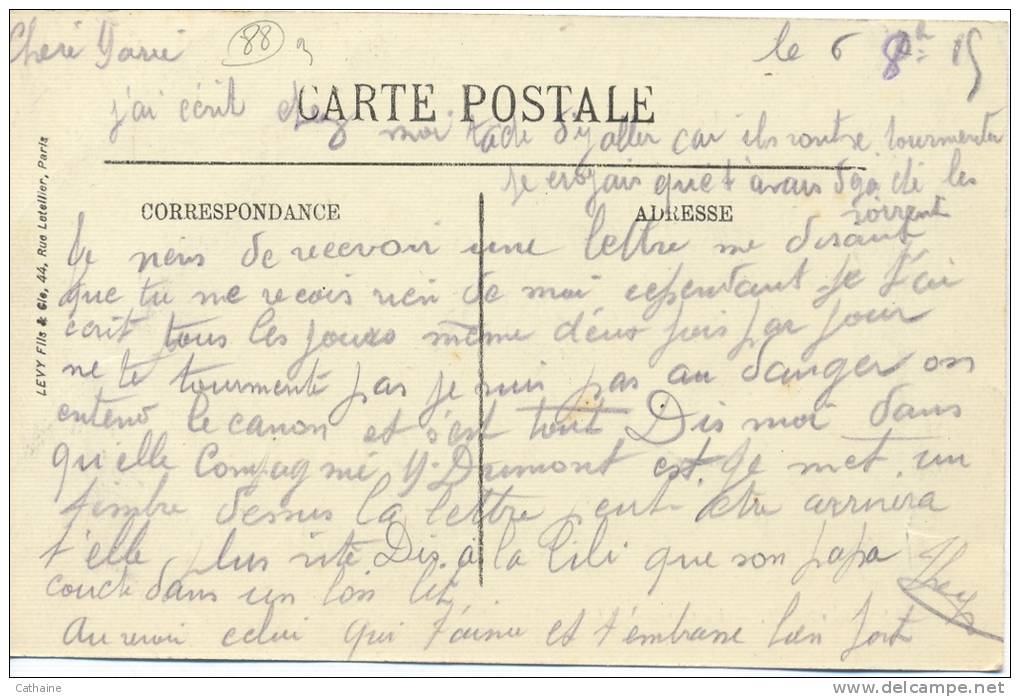 Cheri Marie 88 le 6 8bre 15
CARTE POSTALE
j'ai écrit chez moi tache d'y aller car ils vont se tourmenter
je croyais que t'avais deja
CORRESPONDANCE
ADRESSE
Je viens de recevoir une lettre me disant
que tu ne recois rien de moi cependant je t'ai
écrit tous les jours même deux fois par jour
ne te tourmente pas je suis pas au danger on
entend le canon et s'est tout Dis moi dans
qu'elle Compagnie Y. Dumont est. Je met un
timbre dessus la lettre peut-etre arrivera
t'elle plus vite Dis à la Lili que son papa
couche dans un bon lit
Au revoir celui qui t'aime et t'embrasse bien fort
LEVY Fils & Cie, 44, Rue Letellier, Paris
Cathaine
http://www.delcampe.net